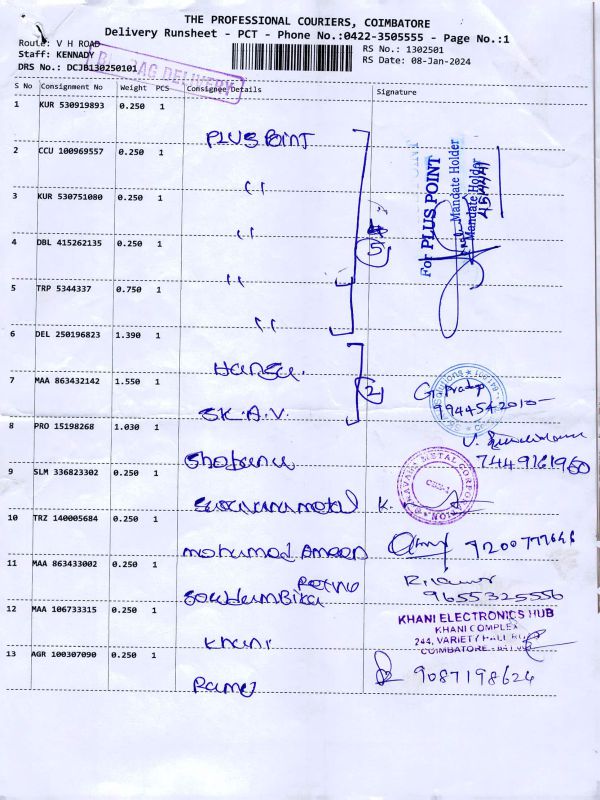 THE PROFESSIONAL COURIERS, COIMBATORE
Delivery Runsheet - PCT - Phone No.:0422-3505555 - Page No.:1
Route: V H ROAD
RS No.: 1302501
Staff: KENNADY
RS Date: 08-Jan-2024
DRS No.: DCJB130250101
BAG DELIVERY
S No Consignment No Weight PCS Consignee Details Signature
1 KUR 530919893 0.250 1
PLUS POINT
2 CCU 100969557 0.250 1
"
3 KUR 530751080 0.250 1
"
4 DBL 415262135 0.250 1
"
5 TRP 5344337 0.750 1
"
5
For PLUS POINT
Mandate Holder
Mandate Holder
6 DEL 250196823 1.390 1
Hansa.
7 MAA 863432142 1.550 1
S.K.A.V.
2
G. Pradap
9944542010
8 PRO 15198268 1.030 1
Shobana
7449161960
9 SLM 336823302 0.250 1
Suvarnametal K.
10 TRZ 140005684 0.250 1
mohamed Ameen
9200777646
11 MAA 863433002 0.250 1
Soudambika
9655325556
12 MAA 106733315 0.250 1
Khani
KHANI ELECTRONICS HUB
KHANI COMPLEX
244, VARIETY HALL
COIMBATORE
13 AGR 100307090 0.250 1
Ramej
9087198624